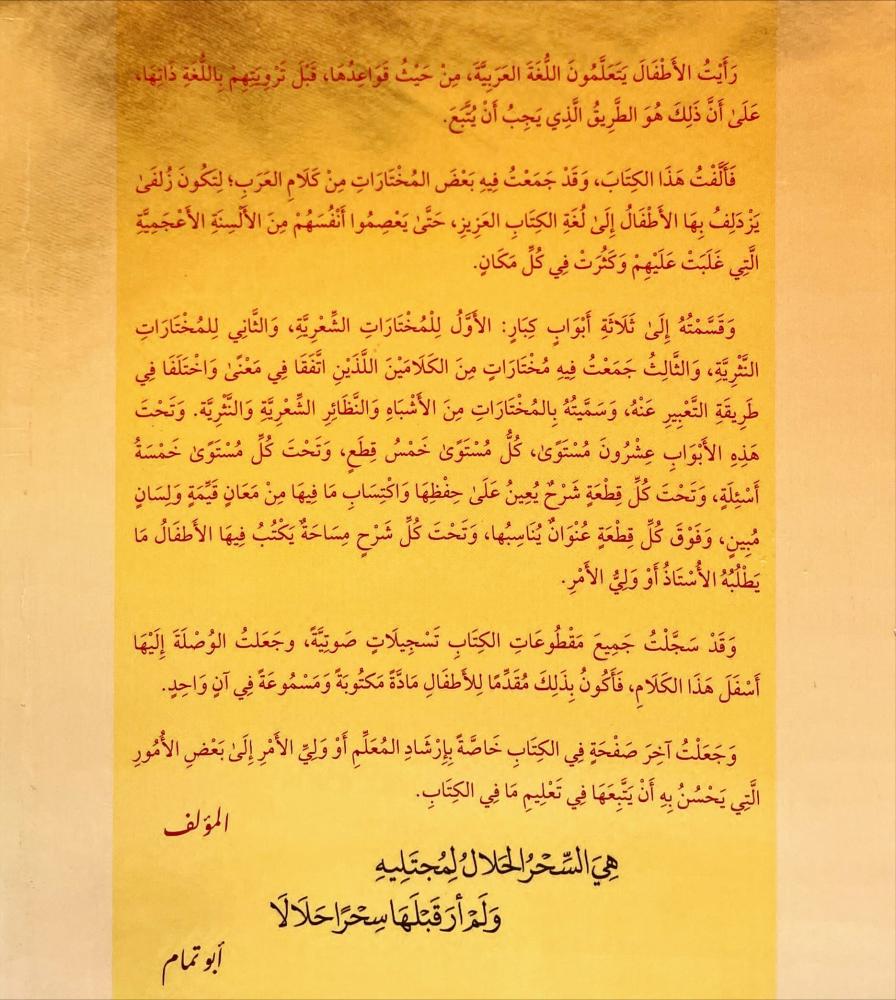 رَأَيْتُ الأَطْفَالَ يَتَعَلَّمُونَ اللُّغَةَ العَرَبِيَّةَ، مِنْ حَيْثُ قَوَاعِدُهَا، قَبْلَ تَرْوِيَتِهِمْ بِاللُّغَةِ ذَاتِهَا،
عَلَىٰ أَنَّ ذَلِكَ هُوَ الطَّرِيقُ الَّذِي يَجِبُ أَنْ يُتَّبَعَ.
فَأَلَّفْتُ هَذَا الكِتَابَ، وَقَدْ جَمَعْتُ فِيهِ بَعْضَ المُخْتَارَاتِ مِنْ كَلَامِ العَرَبِ؛ لِتَكُونَ زُلفَىٰ
يَزْدَلِفُ بِهَا الأَطْفَالُ إِلَىٰ لُغَةِ الكِتَابِ العَزِيزِ، حَتَّىٰ يَعْصِمُوا أَنْفُسَهُمْ مِنَ الأَلْسِنَةِ الأَعْجَمِيَّةِ
الَّتِي غَلَبَتْ عَلَيْهِمْ وَكَثُرَتْ فِي كُلِّ مَكَانٍ.
وَقَسَّمْتُهُ إِلَىٰ ثَلَاثَةِ أَبْوَابٍ كِبَارٍ: الأَوَّلُ لِلْمُخْتَارَاتِ الشِّعْرِيَّةِ، وَالثَّانِي لِلمُخْتَارَاتِ
النَّثْرِيَّةِ، وَالثَّالِثُ جَمَعْتُ فِيهِ مُخْتَارَاتٍ مِنَ الكَلَامَيْنَ اللَّذَيْنِ اتَّفَقَا فِي مَعْنًىٰ وَاخْتَلَفَا فِي
طَرِيقَةِ التَّعْبِيرِ عَنْهُ، وَسَمَّيْتُهُ بِالمُخْتَارَاتِ مِنَ الأَشْبَاهِ وَالنَّظَائِرِ الشِّعْرِيَّةِ وَالنَّثْرِيَّة. وَتَحْتَ
هَذِهِ الأَبْوَابِ عِشْرُونَ مُسْتَوًىٰ، كُلُّ مُسْتَوًىٰ خَمْسُ قِطَعٍ، وَتَحْتَ كُلِّ مُسْتَوًىٰ خَمْسَةُ
أَسْئِلَةٍ، وَتَحْتَ كُلِّ قِطْعَةٍ شَرْحٌ يُعِينُ عَلَىٰ حِفْظِهَا وَاكْتِسَابِ مَا فِيهَا مِنْ مَعَانٍ قَيِّمَةٍ وَلِسَانٍ
مُبِينٍ، وَفَوْقَ كُلِّ قِطْعَةٍ عُنْوَانٌ يُنَاسِبُها، وَتَحْتَ كُلِّ شَرْحٍ مِسَاحَةٌ يَكْتُبُ فِيهَا الأَطْفَالُ مَا
يَطْلُبُهُ الأُسْتَاذُ أَوْ وَلِيُّ الأَمْرِ.
وَقَدْ سَجَّلْتُ جَمِيعَ مَقْطُوعَاتِ الكِتَابِ تَسْجِيلَاتٍ صَوتِيَّةً، وجَعَلتُ الوُصْلَةَ إِلَيْهَا
أَسْفَلَ هَذَا الكَلَامِ، فَأَكُونُ بِذَلِكَ مُقَدِّمًا لِلأَطْفَالِ مَادَّةً مَكتُوبَةً وَمَسْمُوعَةً فِي آنٍ وَاحِدٍ.
وَجَعَلْتُ آخِرَ صَفْحَةٍ فِي الكِتَابِ خَاصَّةً بِإِرْشَادِ المُعَلِّمِ أَوْ وَلِيِّ الأَمْرِ إِلَىٰ بَعْضِ الأُمُورِ
الَّتِي يَحْسُنُ بِهِ أَنْ يَتَّبِعَهَا فِي تَعْلِيمِ مَا فِي الكِتَابِ.
المؤلف
هِيَ السِّحْرُ الحَلَالُ لِمُجتَلِيهِ
وَلَمْ أرَ قَبْلَهَا سِحْرًا حَلَالَا
أبو تمام